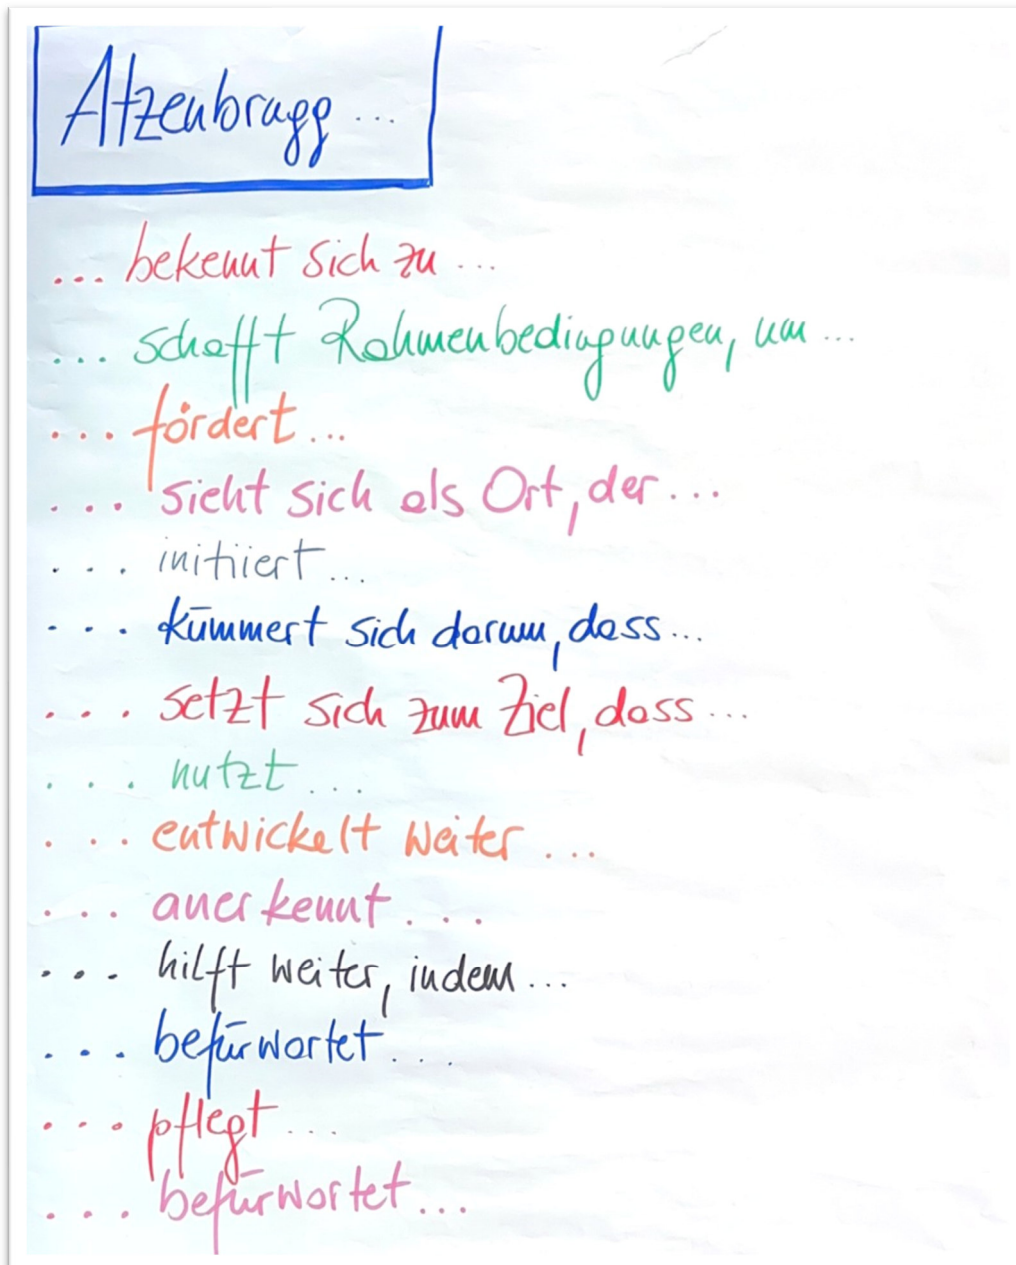 Atzenbrugg ...
... bekennt sich zu ...
... schafft Rahmenbedingungen, um ...
... fördert ...
... sieht sich als Ort, der ...
... initiiert ...
... kümmert sich darum, dass ...
... setzt sich zum Ziel, dass ...
... nutzt ...
... entwickelt weiter ...
... anerkennt ...
... hilft weiter, indem ...
... befürwortet ...
... pflegt ...
... befürwortet ...